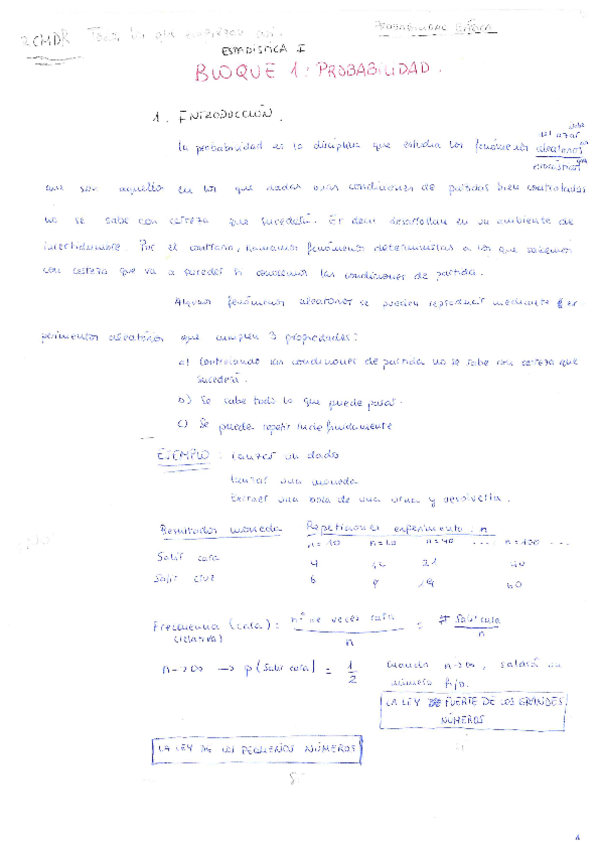 2CMDR Todo lo que empieza así.
PROBABILIDAD
ESTADÍSTICA I
BLOQUE 1: PROBABILIDAD.
1. INTRODUCCIÓN.
La probabilidad es la disciplina que estudia los fenómenos aleatorios
que son aquellos en los que dadas unas condiciones de partidas bien controladas
no se sabe con certeza que sucederá. Es decir desarrollan en un ambiente de
incertidumbre. Por el contrario, llamamos fenómenos deterministas a los que sabemos
con certeza que va a suceder si conocemos las condiciones de partida.
Algunos fenómenos aleatorios se pueden reproducir mediante Ex
perimentos aleatorios que cumplen 3 propiedades:
a) Controlando las condiciones de partida no se sabe con certeza que
sucederá.
b) Se sabe todo lo que puede pasar.
c) Se pueden repetir indefinidamente
EJEMPLO: Lanzar un dado
Lanzar una moneda
Extraer una bola de una urna y devolverla.
Resultados moneda Repeticiones experimento: n
n=10 n=20 n=40 .... n=100 ...
Salir cara 4 12 21
Salir cruz 6 8 19 60
Frecuencia (cara): nº de veces cara / n = # Salir cara / n
(relativa)
n→∞ → p(Salir cara) = 1/2 cuando n→∞, saldrá un
número fijo.
LA LEY FUERTE DE LOS GRANDES
NÚMEROS
LA LEY DE LOS PEQUEÑOS NÚMEROS